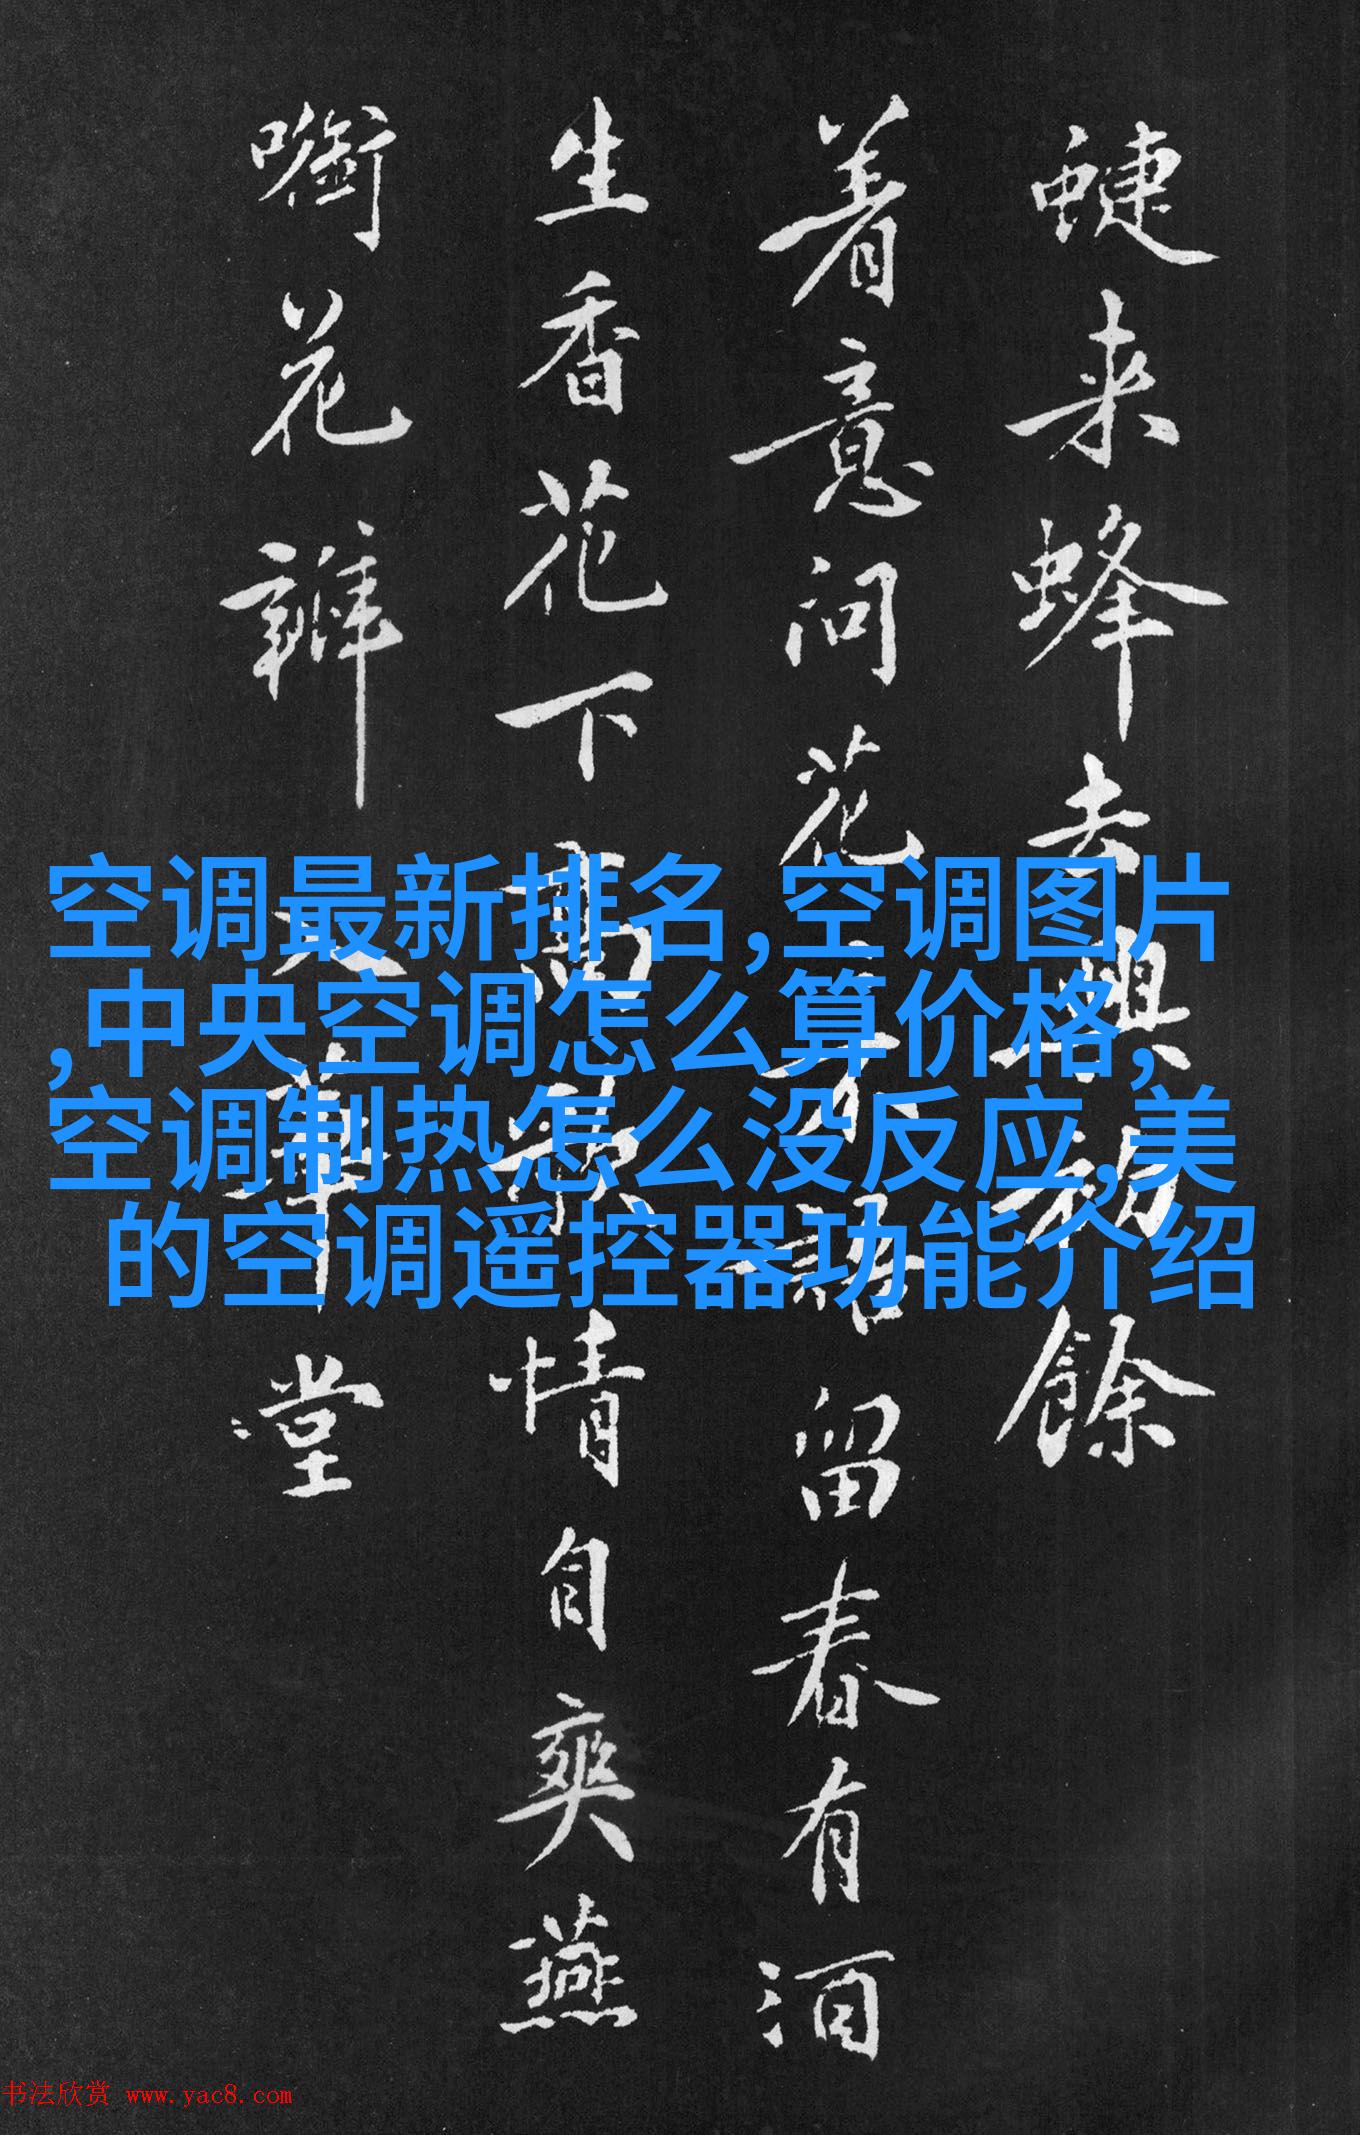 蜨来蜂去興初餘
着意问花花不語留春有酒
生香花下高歌情自爽燕
啣花瓣入華堂
空调最新排名,空调图片
,中央空调怎么算价格,
空调制热怎么没反应,美
的空调遥控器功能介绍
书法欣赏 www.yac8.com